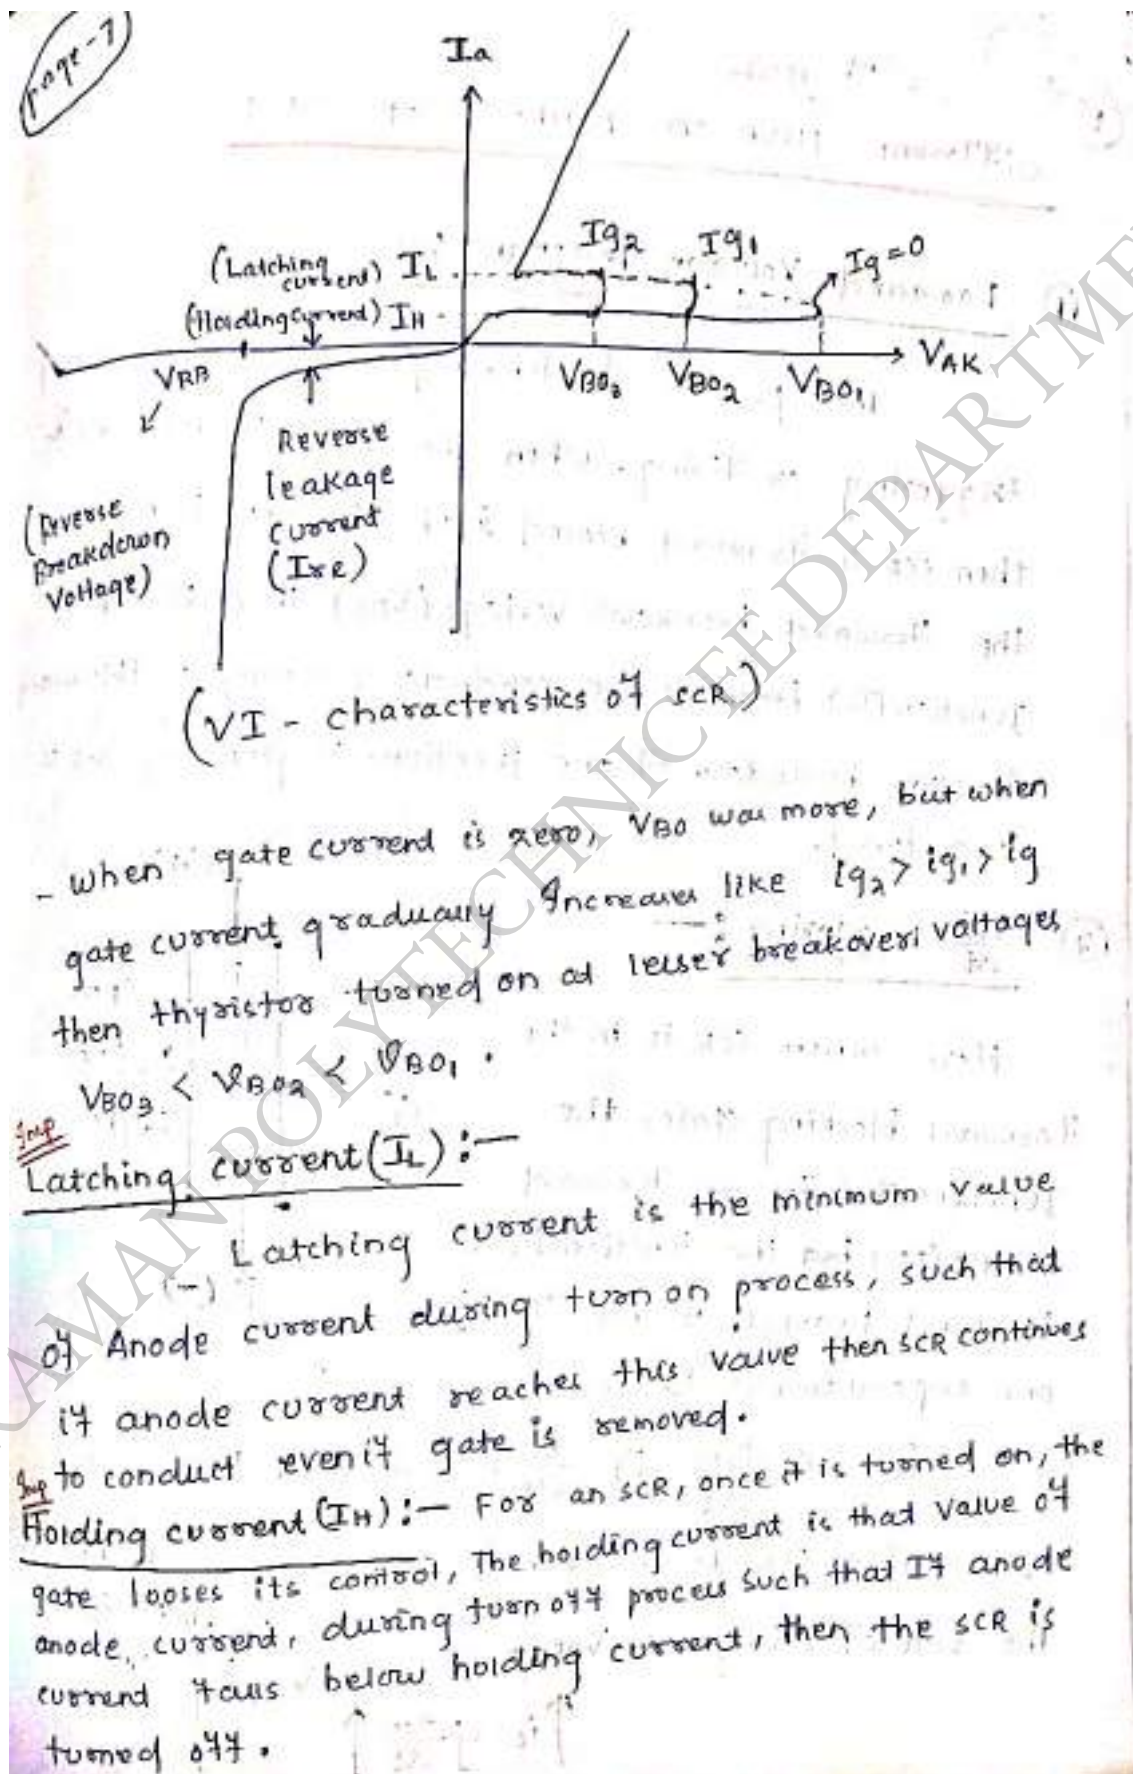 page-7
Ia
Ig2 Ig1 Ig=0
(Latching current) IL
(Holding current) IH
VRB
VBO3 VBO2 VBO1 VAK
Reverse
leakage
current
(Reverse
Breakdown
Voltage)
(VI - characteristics of SCR)
- when gate current is zero, VBO was more, but when
gate current gradually Increases like ig2 > ig1 > ig
then thyristor turned on at lesser breakover voltages
VBO3 < VBO2 < VBO1 .
Imp
Latching current (IL) :-
Latching current is the minimum value
of Anode current during turn on process, such that
if anode current reaches this value then SCR continues
to conduct even if gate is removed.
Imp
Holding current (IH) :- For an SCR, once it is turned on, the
gate looses its control, The holding current is that value of
anode current, during turn off process such that If anode
current falls below holding current, then the SCR is
turned off.
RAMAN POLYTECHNIC EE DEPARTME